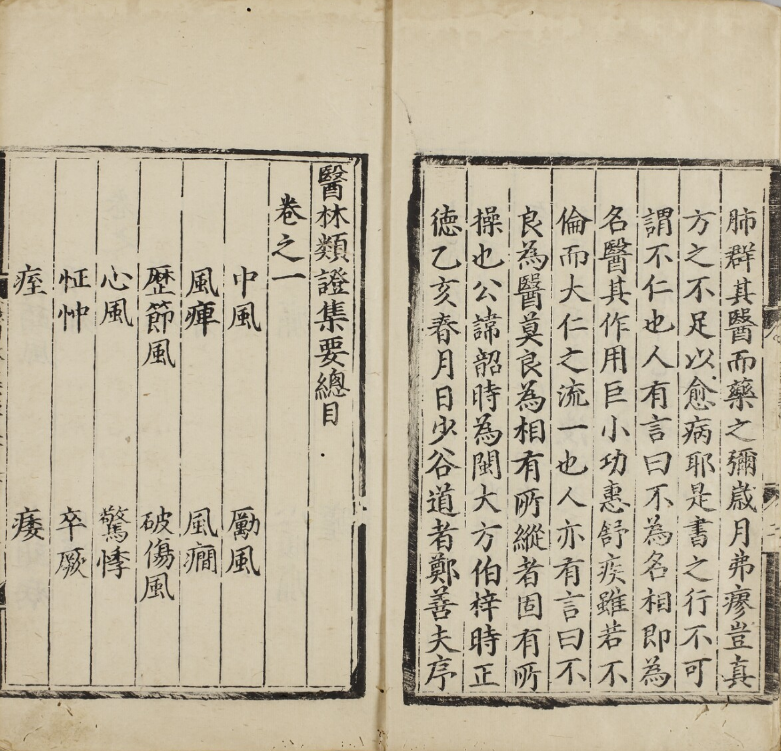 肺群其醫而藥之彌歲月弗瘳豈真
方之不足以愈病耶是書之行不可
謂不仁也人有言曰不為名相即為
名醫其作用巨小功惠舒疾雖若不
倫而大仁之流一也人亦有言曰不
良為醫莫良為相有所縱者固有所
操也公諱韶時為閩大方伯梓時正
德乙亥春月日少谷道者鄭善夫序
醫林類證集要總目
卷之一
中風 癘風
風痺 風癇
歷節風 破傷風
心風 驚悸
怔忡 卒厥
痓 痿